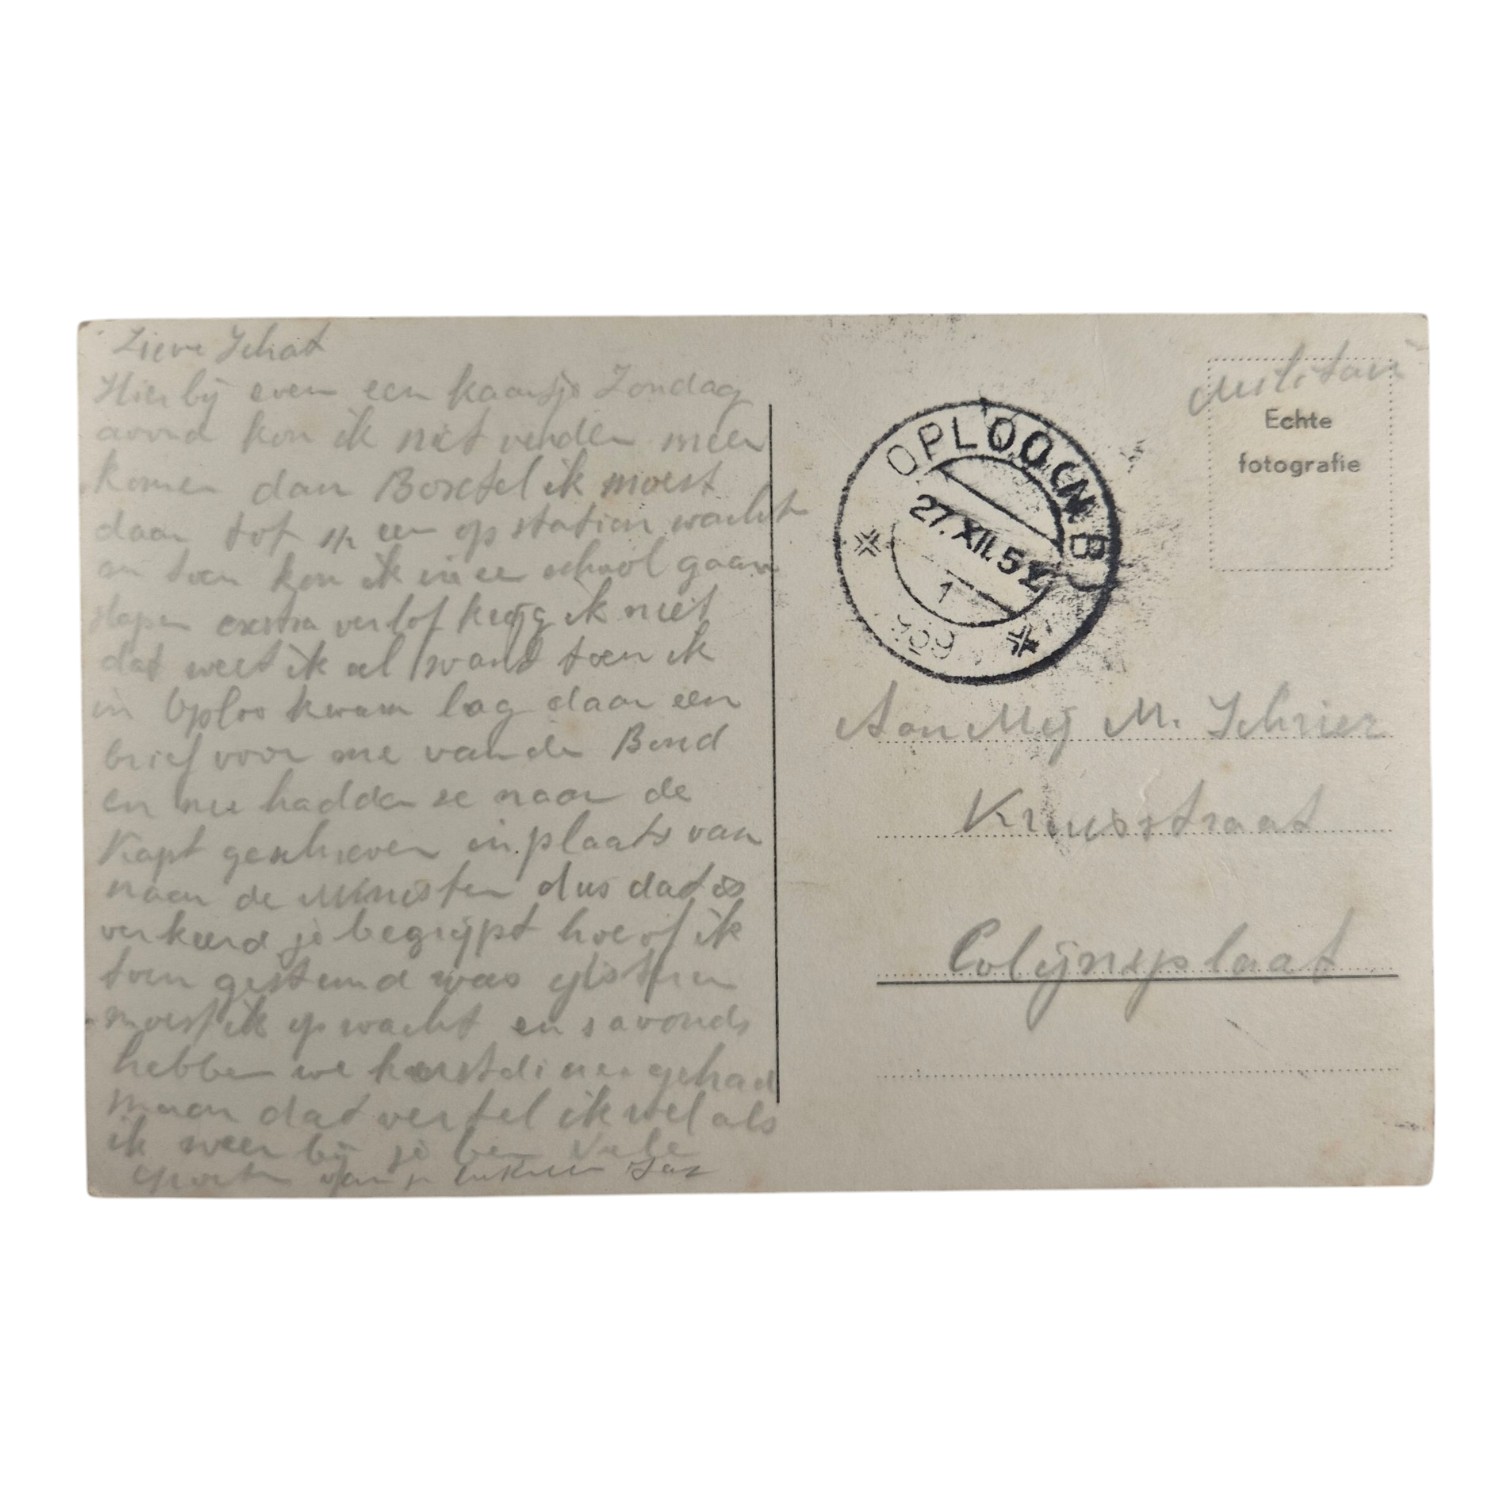 Lieve Schat
Hierbij even een kaartje Zondag
avond kon ik niet verder meer
komen dan Boxtel ik moest
daar tot een op station wacht
en toen kon ik in ee school gaan
slapen exstra verlof krijg ik niet
dat weet ik al want toen ik
in Oploo kwam lag daar een
brief voor me van de Bond
en nu hadden se naar de
Kapt geschreven in plaats van
naar de Minister dus dat is
verkeerd je begrijpt hoe of ik
toen gestemd was gisteren
moest ik op wacht en s avonds
hebben we kerstdiner gehad
maar dat vertel ik wel als
ik weer bij je ben Vele
groeten van je Jaz
militair
Echte
fotografie
OPLOO (N.B.)
27.XII.5
1
939
Aan Mej M. Schrier
Kruisstraat
Colijnsplaat